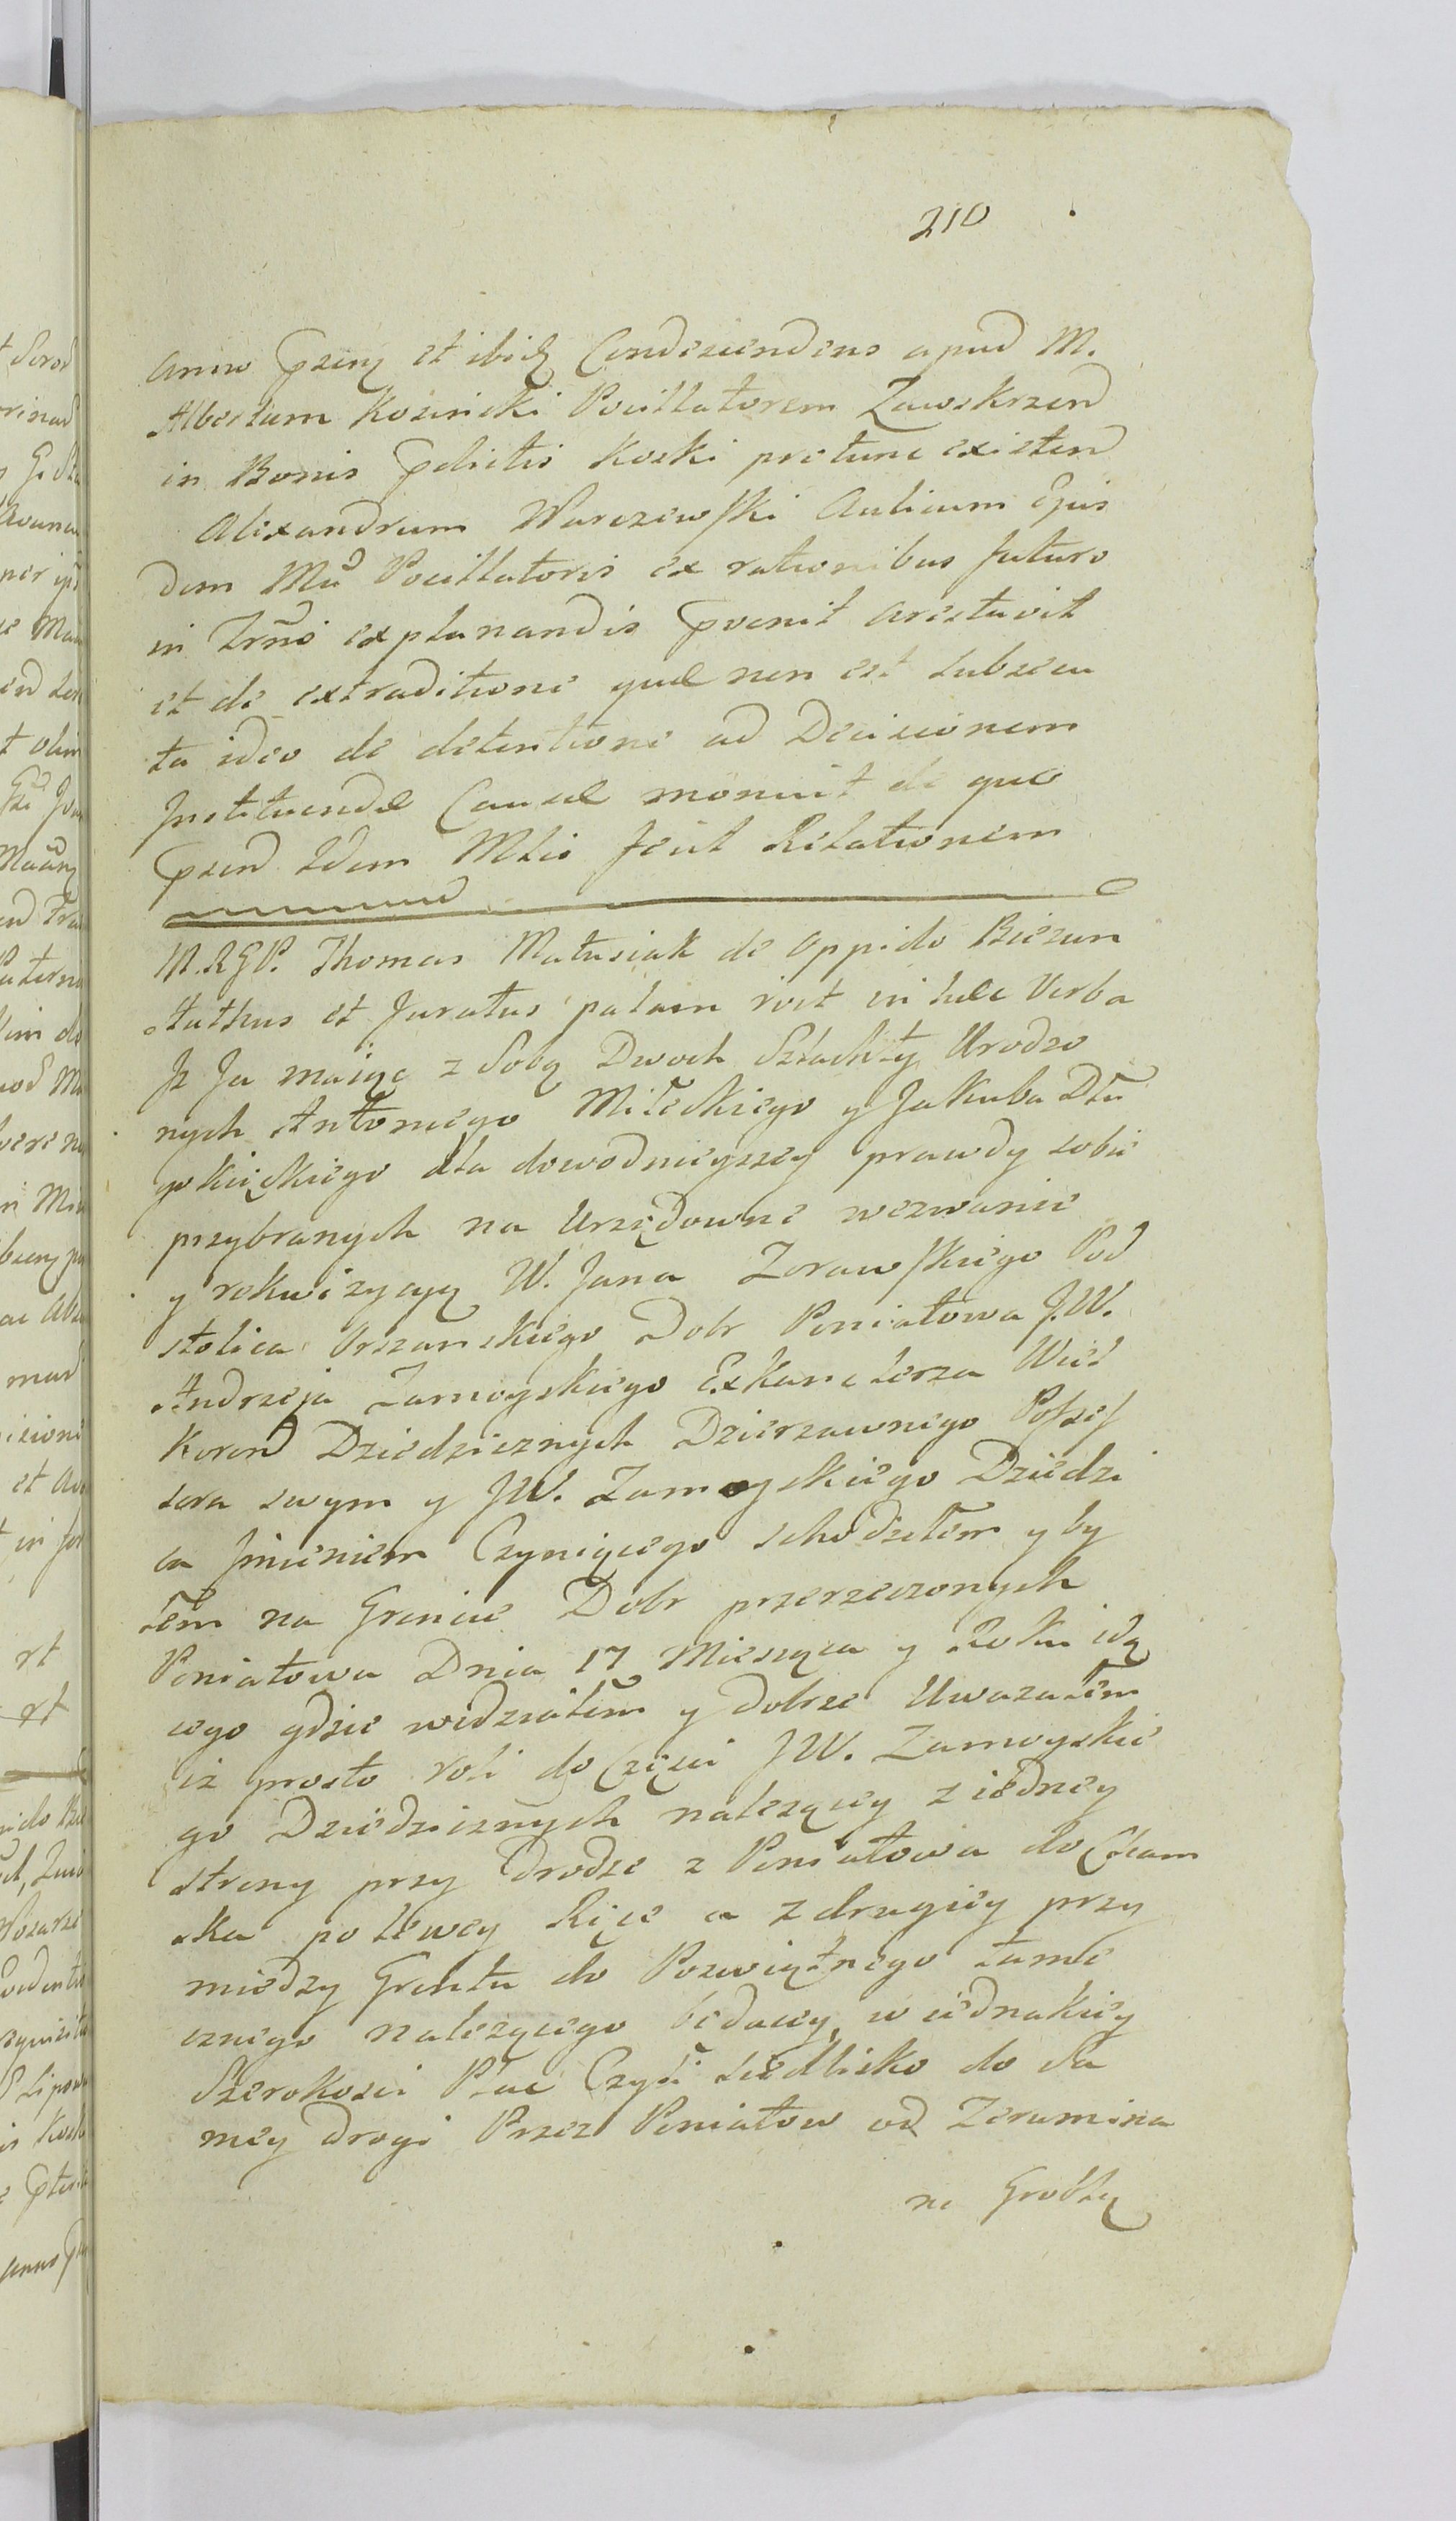 210
Anno Psenz et ibidz Condescendens apud M.
Albertum Kosinski Pocillatorem Zawskrzen
in Bonis Pdictis Koski protunc existen
Alexandrum Warszewski Aulicum Ejus
dem Mci Pocillatoris ex rationibus futuro
in Trno explanandis Pvenit arestavit
et de extraditione quae non est subsecu
ta ideo de detentione ad Decisionem
Instituendae Causae monuit de quo
Psen Idem Mlis fecit Relationem
M.RGP. Thomas Matusiak de Oppido Biezun
Authus et Juratus palam rect in haec Verba
Jz Ja maiąc z Sobą Dwoch Szlachty Urodzo
nych Antoniego Mileckiego y Jakuba Dłu
gokięckiego dla dowodnieyszey prawdy sobie
przybranych na Urzędowne wezwanie
y rekwizycyą W. Jana Zorawskiego Pod
stolica Orszanskiego Dobr Poniatowa J.W.
Andrzeja Zamoyskiego ExKanclerza Wiel
Koron Dziedzicznych Dzierzawnego Possef
sora swym y JW. Zamoyskiego Dziedzi
ca Jmieniem Czyniącego schodziłem y by
łem na Gruncie Dobr przerzeczonych
Poniatowa Dnia 17 Miesząca y Roku idą
cego gdzie widziałem y dobrze Uwazałem
iz prosto roli do Części JW. Zamoyskie
go Dziedzicznych nalezącey z iedney
strony przy drodze z Poniatowa do Cham
ska po lewey Ręce a z drugiey przy
miedzy Gruntu do Poswiątnego tame
cznego nalezącego będącey w iednakiey
Szerokosci Plac Czyli siedlisko do Sa
mey drogi Przez Poniatow od Zeromina
na Groblą